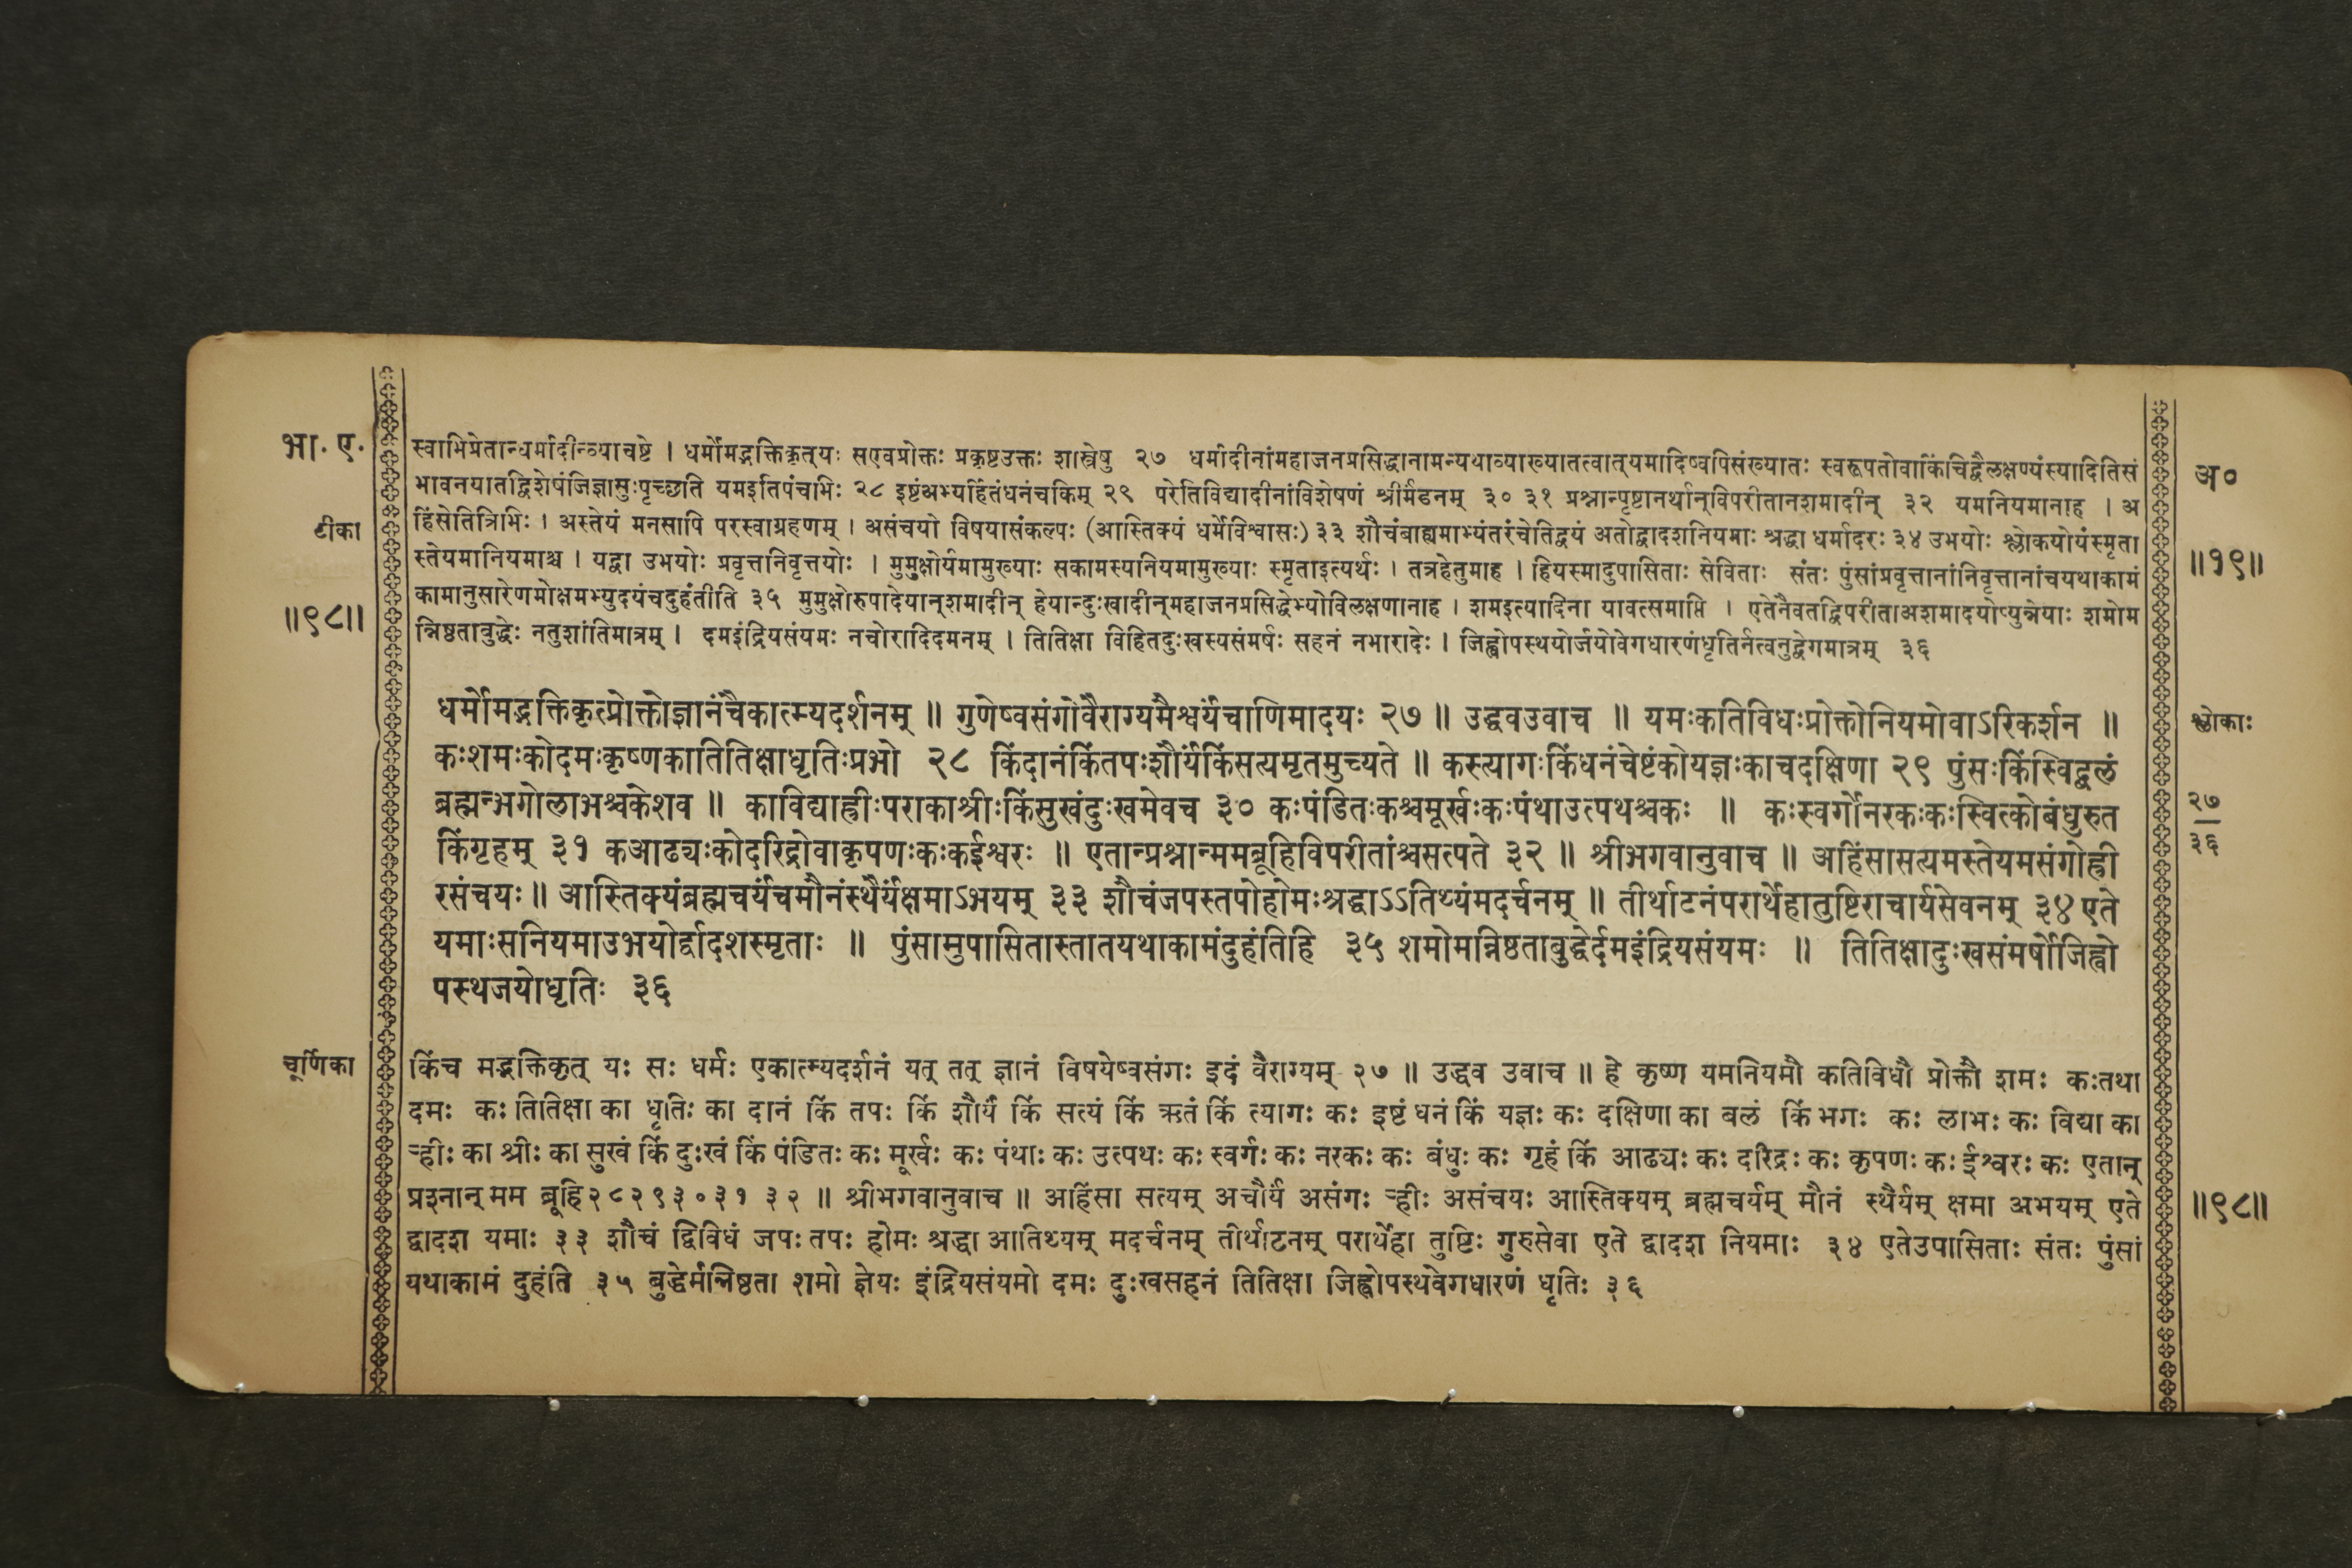 भा. ए.
टीका
॥९८॥
स्वाभिप्रेतान्धर्मादीन्व्याचष्टे । धर्मोमद्भक्तिकृत्यः सएवप्रोक्तः प्रकृष्टउक्तः शास्त्रेषु २७ धर्मादीनांमहाजनप्रसिद्धानामन्यथाव्याख्यातत्वात्यमादिष्वपिसंख्यातः स्वरूपतोवाकिंचिद्वैलक्षण्यंस्यादितिसं
भावनयातद्विशेषंजिज्ञासुःपृच्छति यमइतिपंचभिः २८ इष्टंअभ्यर्हितंधनंचकिम् २९ परेतिविद्यादीनांविशेषणं श्रीर्मंडनम् ३० ३१ प्रश्नान्पृष्टानर्थान्विपरीतानशमादीन् ३२ यमनियमानाह । अ
हिंसेतित्रिभिः । अस्तेयं मनसापि परस्वाग्रहणम् । असंचयो विषयासंकल्पः (आस्तिक्यं धर्मेविश्वासः) ३३ शौचंबाह्यमाभ्यंतरंचेतिद्वयं अतोद्वादशनियमाः श्रद्धा धर्मादरः ३४ उभयोः श्लोकयोर्यंस्मृता
स्तेयमानियमाश्च । यद्वा उभयोः प्रवृत्तनिवृत्तयोः । मुमुक्षोर्यमामुख्याः सकामस्यनियमामुख्याः स्मृताइत्यर्थः । तत्रहेतुमाह । हियस्मादुपासिताः सेविताः संतः पुंसांप्रवृत्तानांनिवृत्तानांचयथाकामं
कामानुसारेणमोक्षमभ्युदयंचदुहंतीति ३५ मुमुक्षोरुपादेयान्शमादीन् हेयान्दुःखादीन्महाजनप्रसिद्धेभ्योविलक्षणानाह । शमइत्यादिना यावत्समाप्ति । एतेनैवतद्विपरीताअशमादयोऽप्युन्नेयाः शमोम
न्निष्ठताबुद्धेः नतुशांतिमात्रम् । दमइंद्रियसंयमः नचोरादिदमनम् । तितिक्षा विहितदुःखस्यसंमर्षः सहनं नभारादेः । जिह्वोपस्थयोर्जयोवेगधारणंधृतिर्नत्वनुद्वेगमात्रम् ३६
अ०
॥१९॥
धर्मोमद्भक्तिकृत्प्रोक्तोज्ञानंचैकात्म्यदर्शनम् ॥ गुणेष्वसंगोवैराग्यमैश्वर्यंचाणिमादयः २७ ॥ उद्धवउवाच ॥ यमःकतिविधःप्रोक्तोनियमोवाऽरिकर्शन ॥
कःशमःकोदमःकृष्णकातितिक्षाधृतिःप्रभो २८ किंदानंकिंतपःशौर्यंकिंसत्यमृतमुच्यते ॥ कस्त्यागःकिंधनंचेष्टंकोयज्ञःकाचदक्षिणा २९ पुंसःकिंस्विद्बलं
ब्रह्मन्भगोलाभश्चकेशव ॥ काविद्याह्रीःपराकाश्रीःकिंसुखंदुःखमेवच ३० कःपंडितःकश्चमूर्खःकःपंथाउत्पथश्चकः ॥ कःस्वर्गोनरकःकःस्वित्कोबंधुरुत
किंगृहम् ३१ कआढ्यःकोदरिद्रोवाकृपणःकःकईश्वरः ॥ एतान्प्रश्नान्ममब्रूहिविपरीतांश्चसत्पते ३२ ॥ श्रीभगवानुवाच ॥ अहिंसासत्यमस्तेयमसंगोह्री
रसंचयः ॥ आस्तिक्यंब्रह्मचर्यंचमौनंस्थैर्यंक्षमाऽभयम् ३३ शौचंजपस्तपोहोमःश्रद्धाऽऽतिथ्यंमदर्चनम् ॥ तीर्थाटनंपरार्थेहातुष्टिराचार्यसेवनम् ३४ एते
यमाःसनियमाउभयोर्द्वादशस्मृताः ॥ पुंसामुपासितास्तातयथाकामंदुहंतिहि ३५ शमोमन्निष्ठताबुद्धेर्दमइंद्रियसंयमः ॥ तितिक्षादुःखसंमर्षोजिह्वो
पस्थजयोधृतिः ३६
श्लोकाः
२७
३६
चूर्णिका
किंच मद्भक्तिकृत् यः सः धर्मः एकात्म्यदर्शनं यत् तत् ज्ञानं विषयेष्वसंगः इदं वैराग्यम् २७ ॥ उद्धव उवाच ॥ हे कृष्ण यमनियमौ कतिविधौ प्रोक्तौ शमः कःतथा
दमः कः तितिक्षा का धृतिः का दानं किं तपः किं शौर्यं किं सत्यं किं ऋतं किं त्यागः कः इष्टं धनं किं यज्ञः कः दक्षिणा का बलं किं भगः कः लाभः कः विद्या का
ऱ्हीः का श्रीः का सुखं किं दुःखं किं पंडितः कः मूर्खः कः पंथाः कः उत्पथः कः स्वर्गः कः नरकः कः बंधुः कः गृहं किं आढ्यः कः दरिद्रः कः कृपणः कः ईश्वरः कः एतान्
प्रश्नान् मम ब्रूहि२८२९३०३१ ३२ ॥ श्रीभगवानुवाच ॥ अहिंसा सत्यम् अचौर्यं असंगः ऱ्हीः असंचयः आस्तिक्यम् ब्रह्मचर्यम् मौनं स्थैर्यम् क्षमा अभयम् एते
द्वादश यमाः ३३ शौचं द्विविधं जपः तपः होमः श्रद्धा आतिथ्यम् मदर्चनम् तीर्थाटनम् परार्थेहा तुष्टिः गुरुसेवा एते द्वादश नियमाः ३४ एतेउपासिताः संतः पुंसां
यथाकामं दुहंति ३५ बुद्धेर्मन्निष्ठता शमो ज्ञेयः इंद्रियसंयमो दमः दुःखसहनं तितिक्षा जिह्वोपस्थवेगधारणं धृतिः ३६
॥९८॥